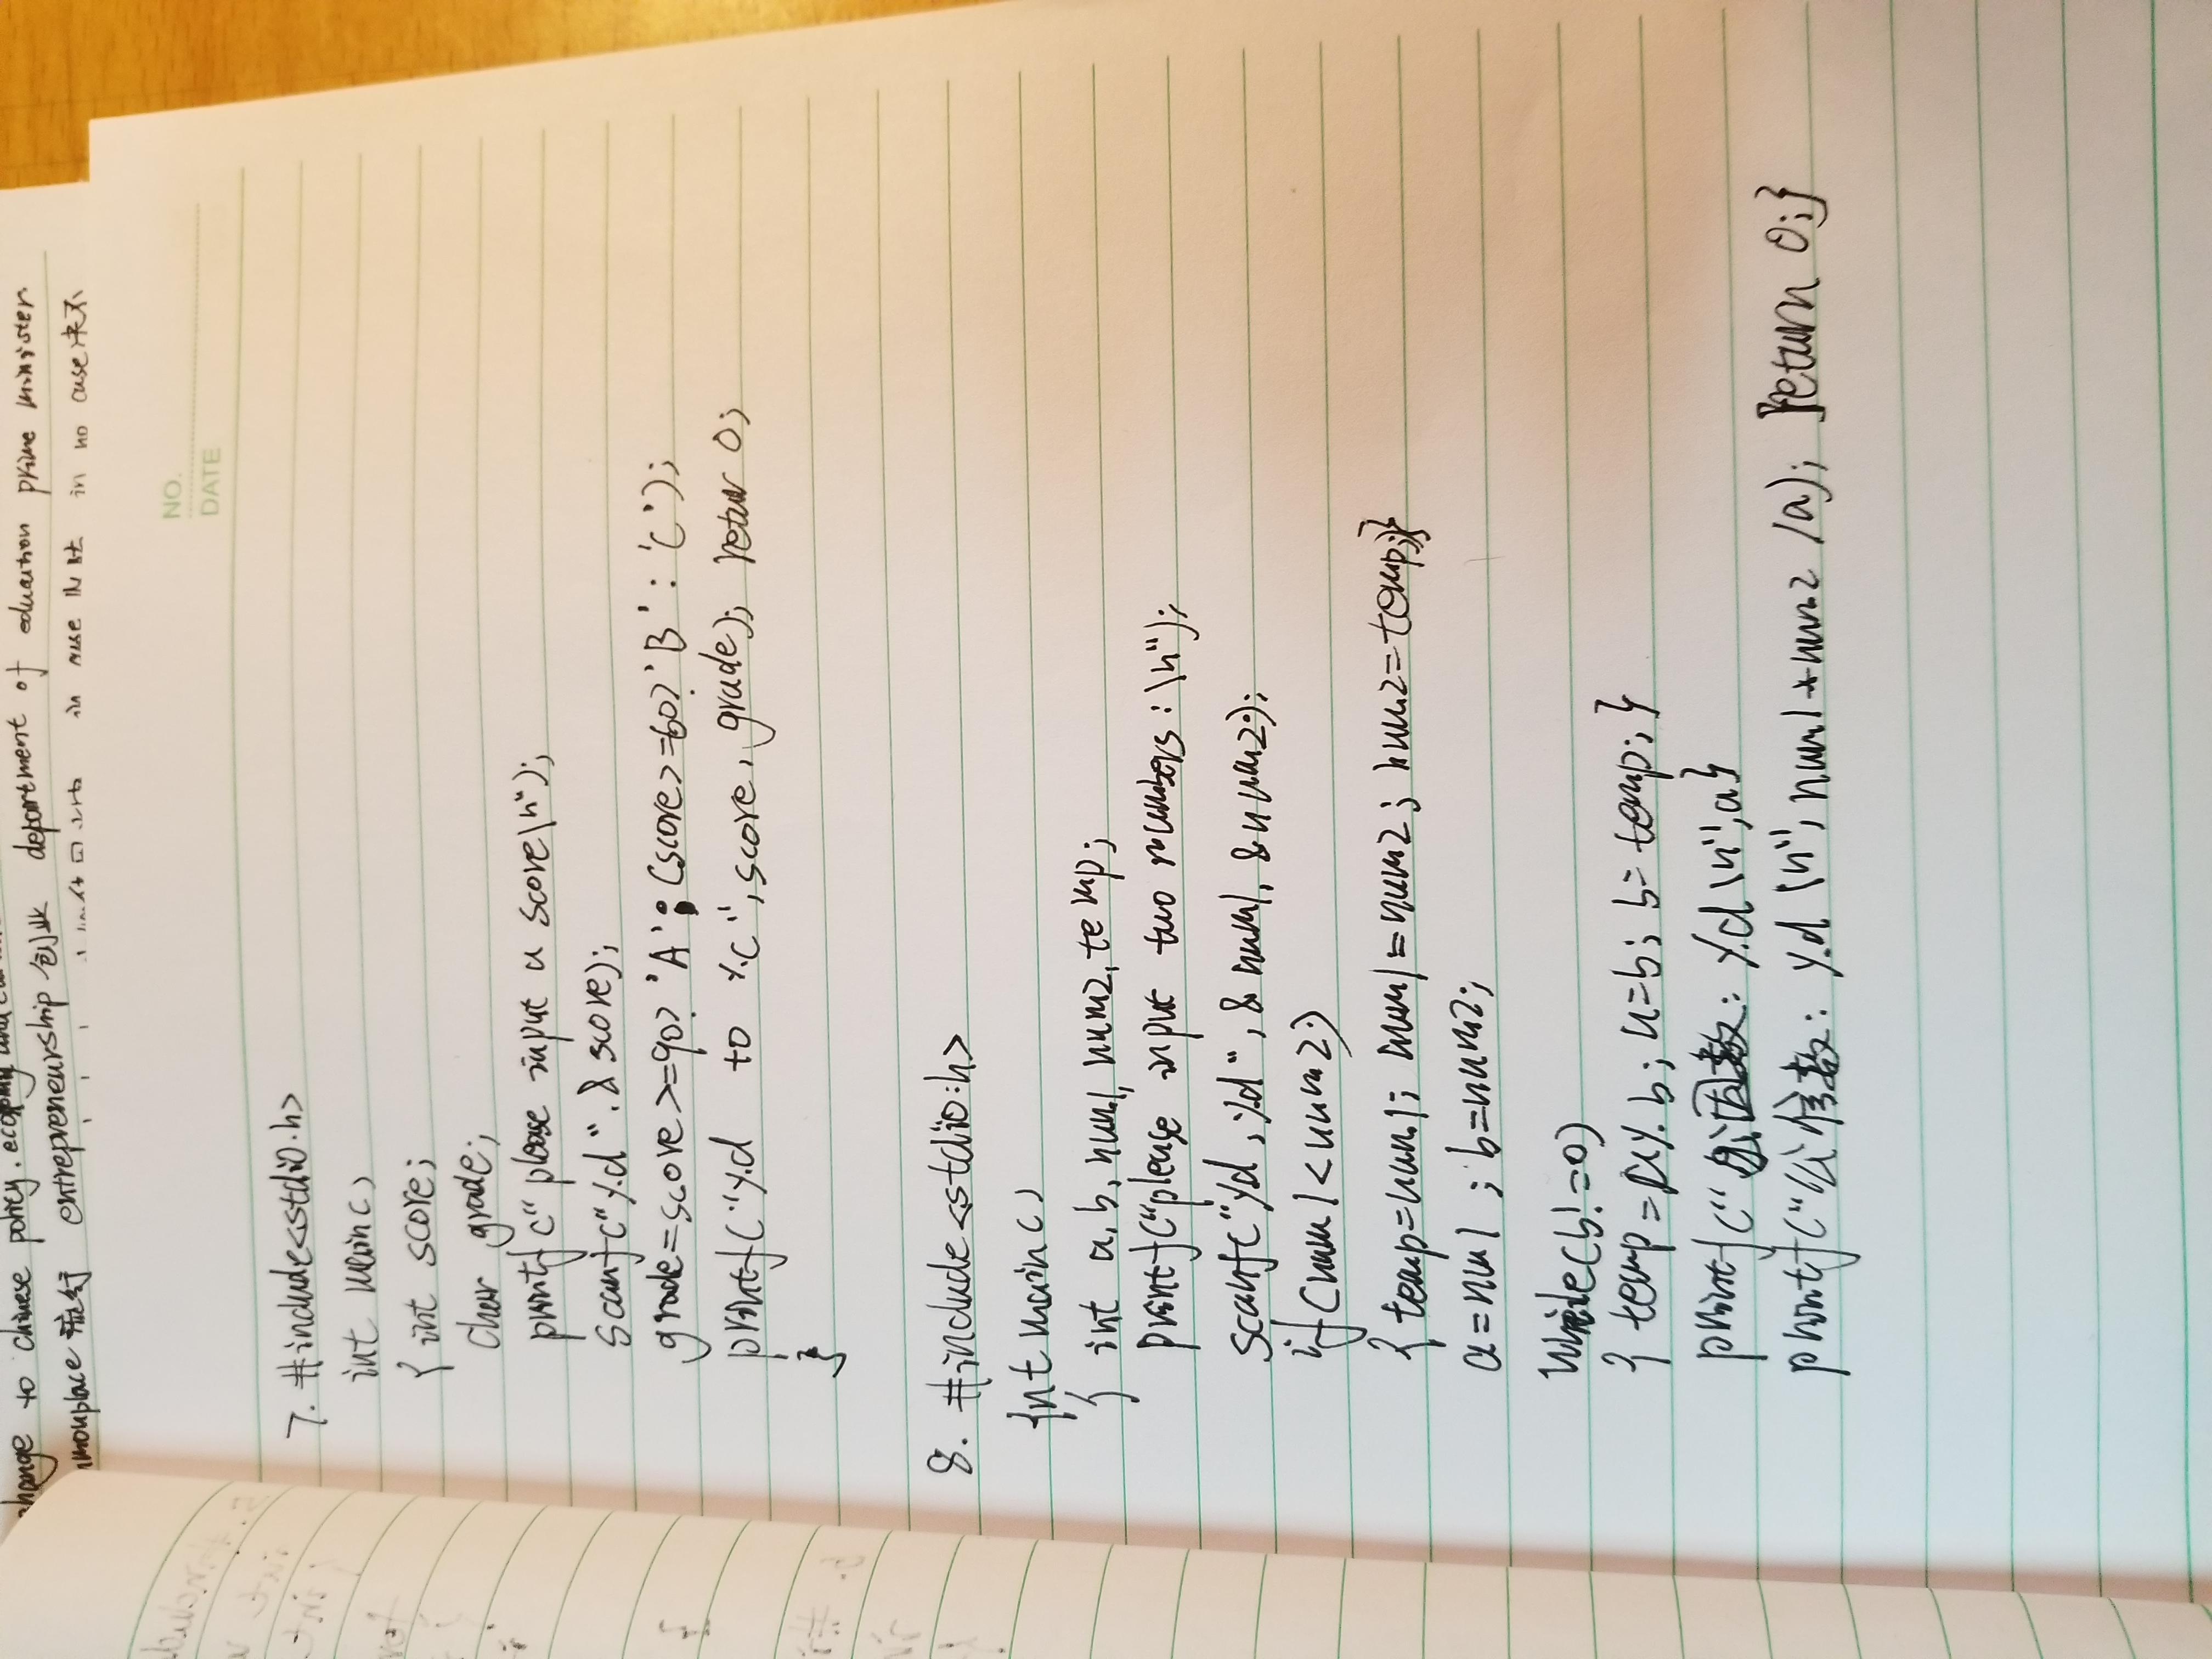 change to chinese policy. economy and
mmonplace 流行 entrepreneurship 创业 department of eduartion prime minister
in case 以防 in no case 决不
NO.
DATE
7. #include<stdio.h>
int main()
{ int score;
char grade;
printf("please input a score\n");
scanf("%d",&score);
grade=score>=90?'A':(score>=60?'B':'C');
printf("%d to %c",score,grade); retur 0;
}
8. #include<stdio:h>
int main()
{ int a,b,num1,num2,temp;
printf("please input two numbers:\n");
scanf("%d,%d",&num1,&num2);
if(num1<num2)
{temp=num1; num1=num2; num2=temp;}
a=num1 ; b=num2;
while(b!=0)
{ temp=a%b; a=b; b=temp;}
printf("公因数: %d\n",a}
printf("公倍数: %d\n",num1*num2/a); return 0;}